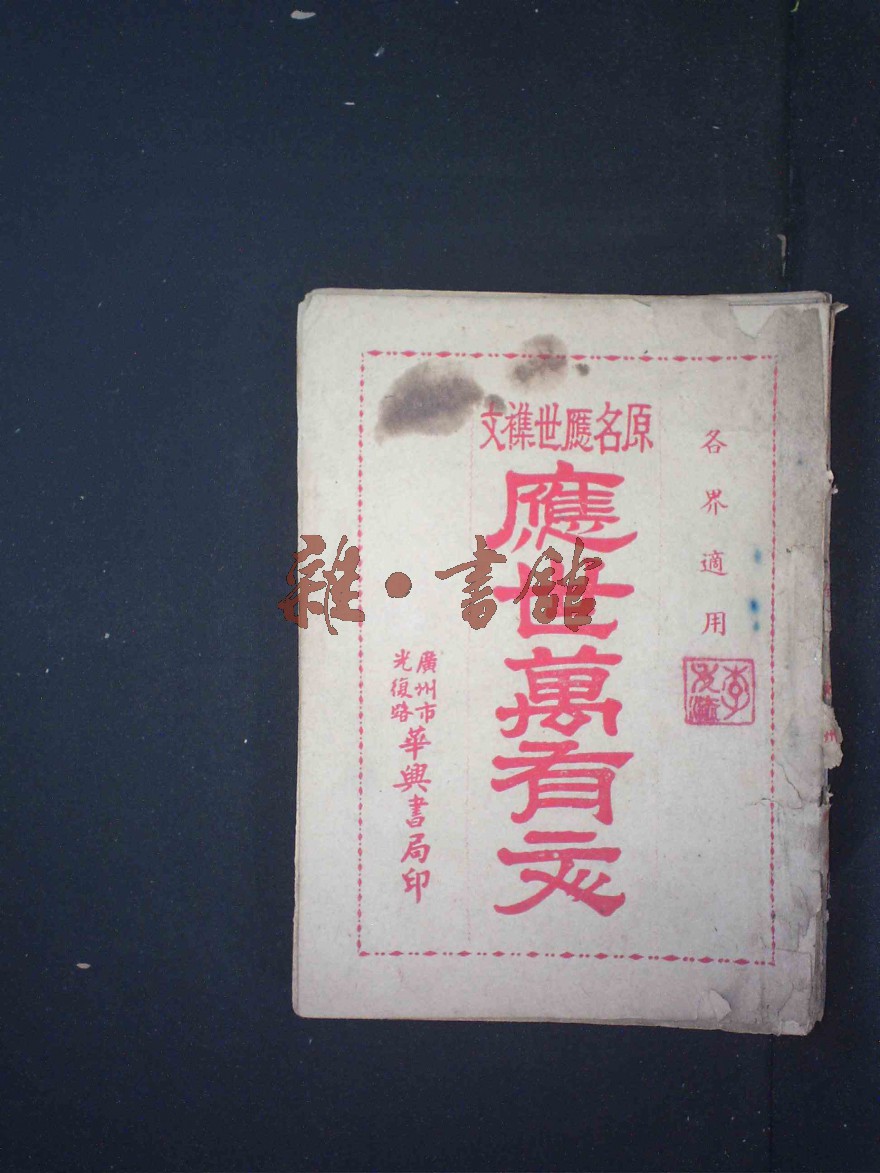 各界適用
原名應世襍文
應世萬有文
廣州市
光復路
華興書局印
雜·書館